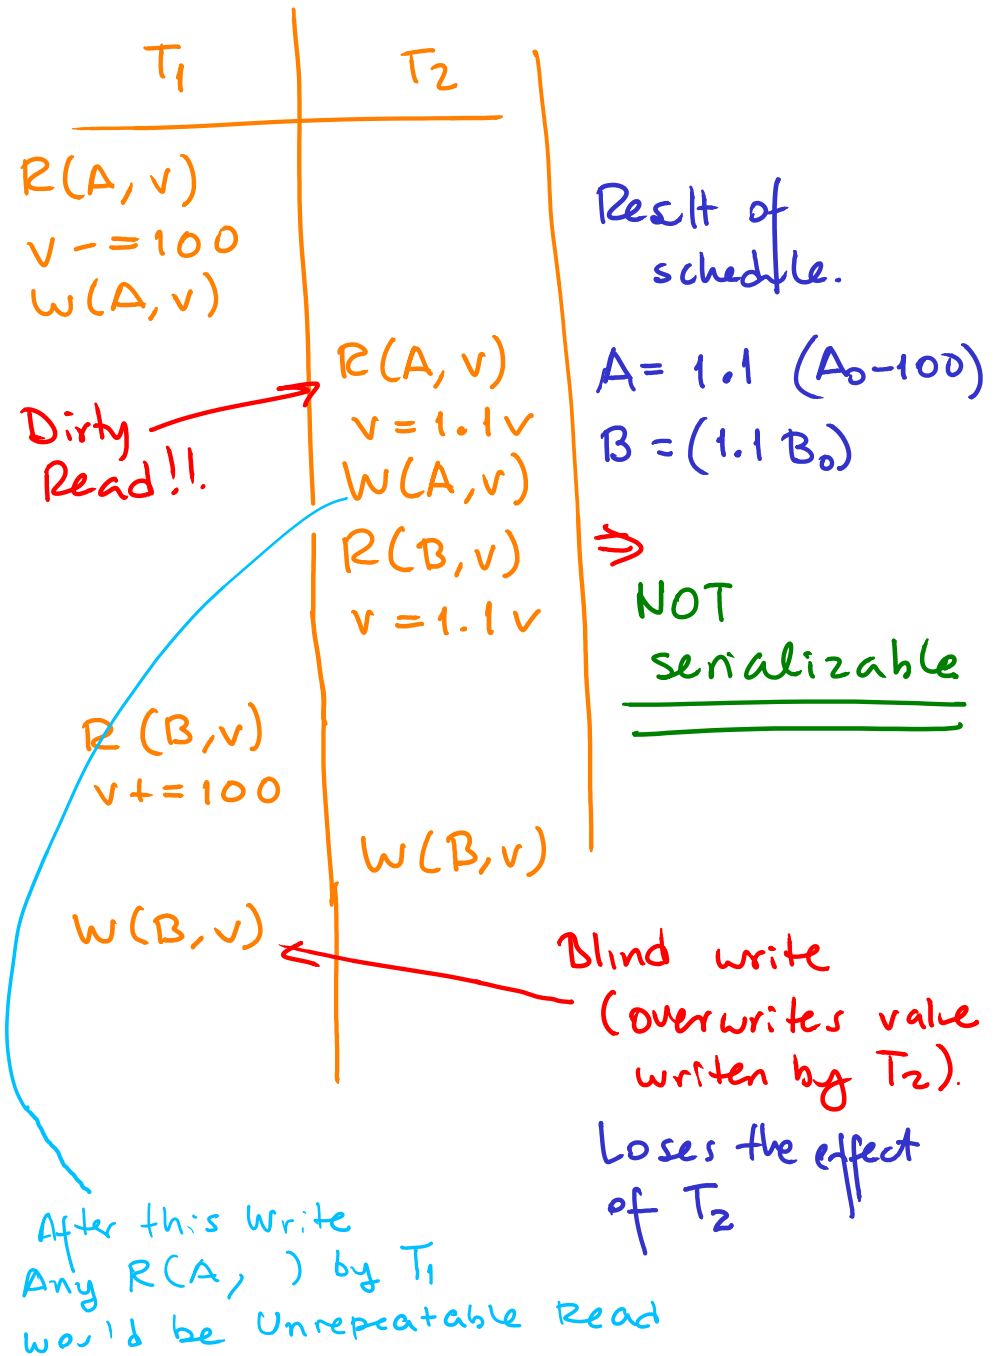 T1 T2
R(A, v)
v -= 100
W(A, v)
R(A, v)
v = 1.1 v
W(A, v)
R(B, v)
v = 1.1 v
R (B, v)
v += 100
W(B, v)
W(B, v)
Dirty
Read!!.
Reslt of
schedle.
A = 1.1 (A0-100)
B = (1.1 B0)
⇒
NOT
serializable
Blind write
(overwrites value
writen by T2).
Loses the effect
of T2
After this Write
Any R(A, ) by T1
would be Unrepeatable Read